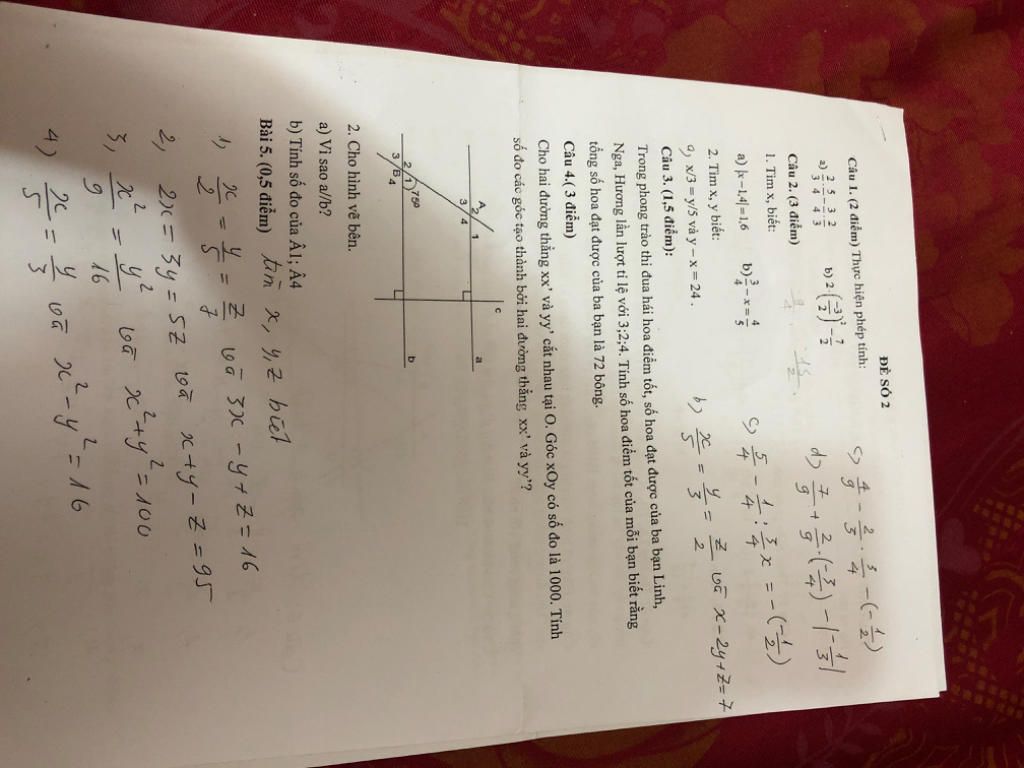 ĐỀ SỐ 2
Câu 1. (2 điểm) Thực hiện phép tính:
a) 2/3 · 5/4 − 3/4 · 2/3 b) 2·(−3/2)² − 7/2
c) 4/9 − 2/3 · 3/4 − (−1/2)
d) 7/9 + 2/9 · (−3/4) − |−1/3|
Câu 2. (3 điểm)
15/2
1. Tìm x, biết:
a) |x − 1,4| = 1,6 b) 3/4 − x = 4/5
c) 5/4 − 1/4 : 3/4 x = −(−1/2)
2. Tìm x, y biết:
a, x/3 = y/5 và y − x = 24 .
b) x/5 = y/3 = z/2 và x − 2y + z = 7
Câu 3. (1,5 điểm):
Trong phong trào thi đua hái hoa điểm tốt, số hoa đạt được của ba bạn Linh,
Nga, Hương lần lượt tỉ lệ với 3;2;4. Tính số hoa điểm tốt của mỗi bạn biết rằng
tổng số hoa đạt được của ba bạn là 72 bông.
Câu 4.( 3 điểm)
Cho hai đường thẳng xx' và yy' cắt nhau tại O. Góc xOy có số đo là 1000. Tính
số đo các góc tạo thành bởi hai đường thẳng xx' và yy'?
c
A 2 1 a
3 4
2 1 75⁰ b
3 B 4
2. Cho hình vẽ bên.
a) Vì sao a//b?
b) Tính số đo của Â1; Â4
Bài 5. (0,5 điểm) tìm x, y, z biết
1, x/2 = y/5 = z/7 và 3x − y + z = 16
2, 2x = 3y = 5z và x + y − z = 95
3, x²/9 = y²/16 và x² + y² = 100
4) x/5 = y/3 và x² − y² = 16